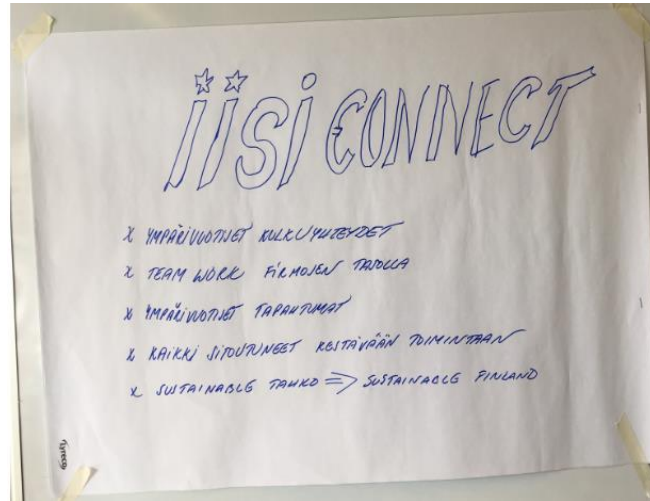 iiSi CONNECT
x YMPÄRIVUOTISET KULKUYHTEYDET
x TEAM WORK FIRMOJEN TASOLLA
x YMPÄRIVUOTISET TAPAHTUMAT
x KAIKKI SITOUTUNEET KESTÄVÄÄN TOIMINTAAN
x SUSTAINABLE TAHKO => SUSTAINABLE FINLAND